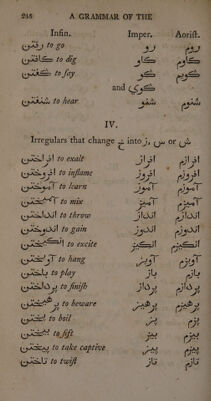 246 A GRAMMAR OF THE
Infin. Imper. Aorist.
رفتن to go رو روم
كافتن to dig كاو كاوم
كفتن to say كو كويم
and كوي
شنفتن to hear شنو شنوم
IV.
Irregulars that change خ into ز, س or ش
افراختن to exalt افراز افرازم
افروختن to inflame افروز افروزم
آموختن to learn آموز آموزم
آميختن to mix آميز آميزم
انداختن to throw انداز اندازم
اندوختن to gain اندوز اندوزم
انكيختن to excite انكيز انكيزم
آويختن to hang آويز آويزم
باختن to play باز بازم
پرداختن to finish پرداز پردازم
پرهيختن to beware پرهيز پرهيزم
پختن to boil پز پزم
بيختن to sift بيز بيزم
to take captive
تاختن to twist تاز تازم